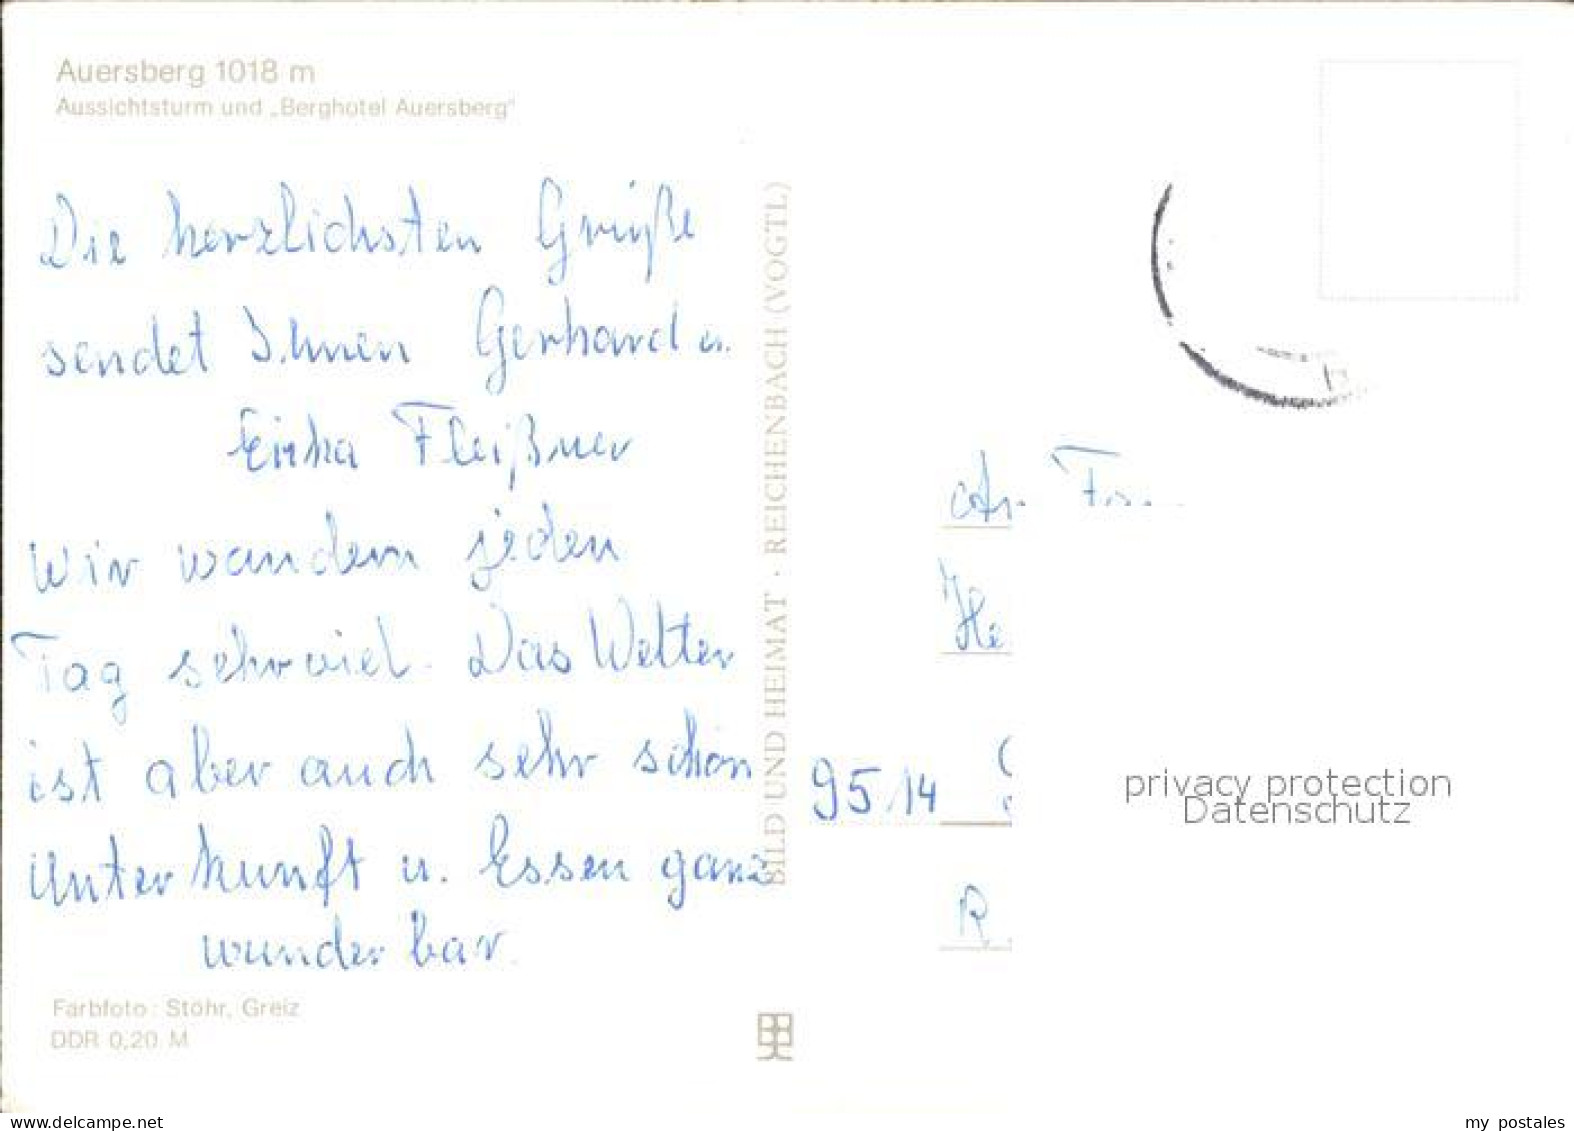 Auersberg 1018 m
Aussichtsturm und „Berghotel Auersberg"
Die herzlichsten Grüße
sendet Ihnen Gerhard u.
Erika Fleißner
Wir wandern jeden
Tag sehr viel. Das Wetter
ist aber auch sehr schön
Unterkunft u. Essen ganz
wunderbar.
Farbfoto: Stöhr, Greiz
DDR 0,20 M
BILD UND HEIMAT · REICHENBACH (VOGTL)
9514
privacy protection
Datenschutz
www.delcampe.net
my_postales